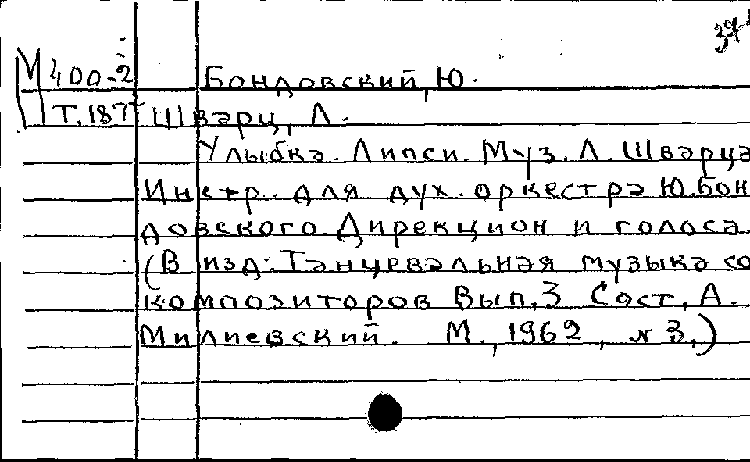 М 400-2 Бондовский, Ю.
Т.187 Шварц, Л.
Улыбка. Липси. Муз. Л. Шварца
Инстр. для дух. оркестра Ю. Бон
довского. Дирекцион и голоса.
(В изд: Танцевальная музыка со
композиторов Вып. 3 Сост. А.
Милиевский. М., 1962, № 3.)